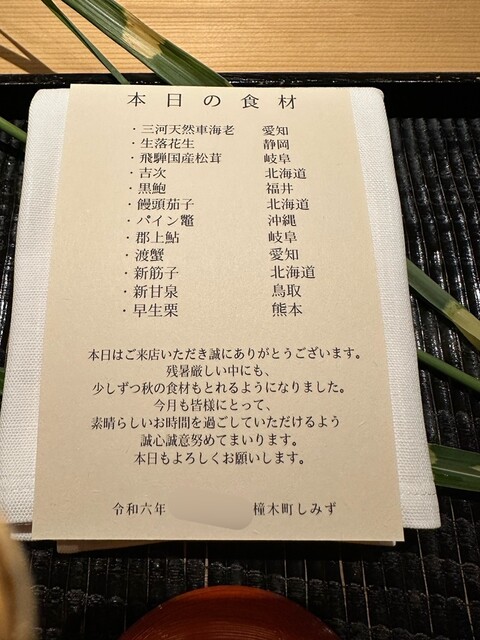 本日の食材
・三河天然車海老 愛知
・生落花生 静岡
・飛騨国産松茸 岐阜
・吉次 北海道
・黒鮑 福井
・饅頭茄子 北海道
・パイン鼈 沖縄
・郡上鮎 岐阜
・渡蟹 愛知
・新筋子 北海道
・新甘泉 鳥取
・早生栗 熊本
本日はご来店いただき誠にありがとうございます。
残暑厳しい中にも、
少しずつ秋の食材もとれるようになりました。
今月も皆様にとって、
素晴らしいお時間を過ごしていただけるよう
誠心誠意努めてまいります。
本日もよろしくお願いします。
令和六年 橦木町しみず